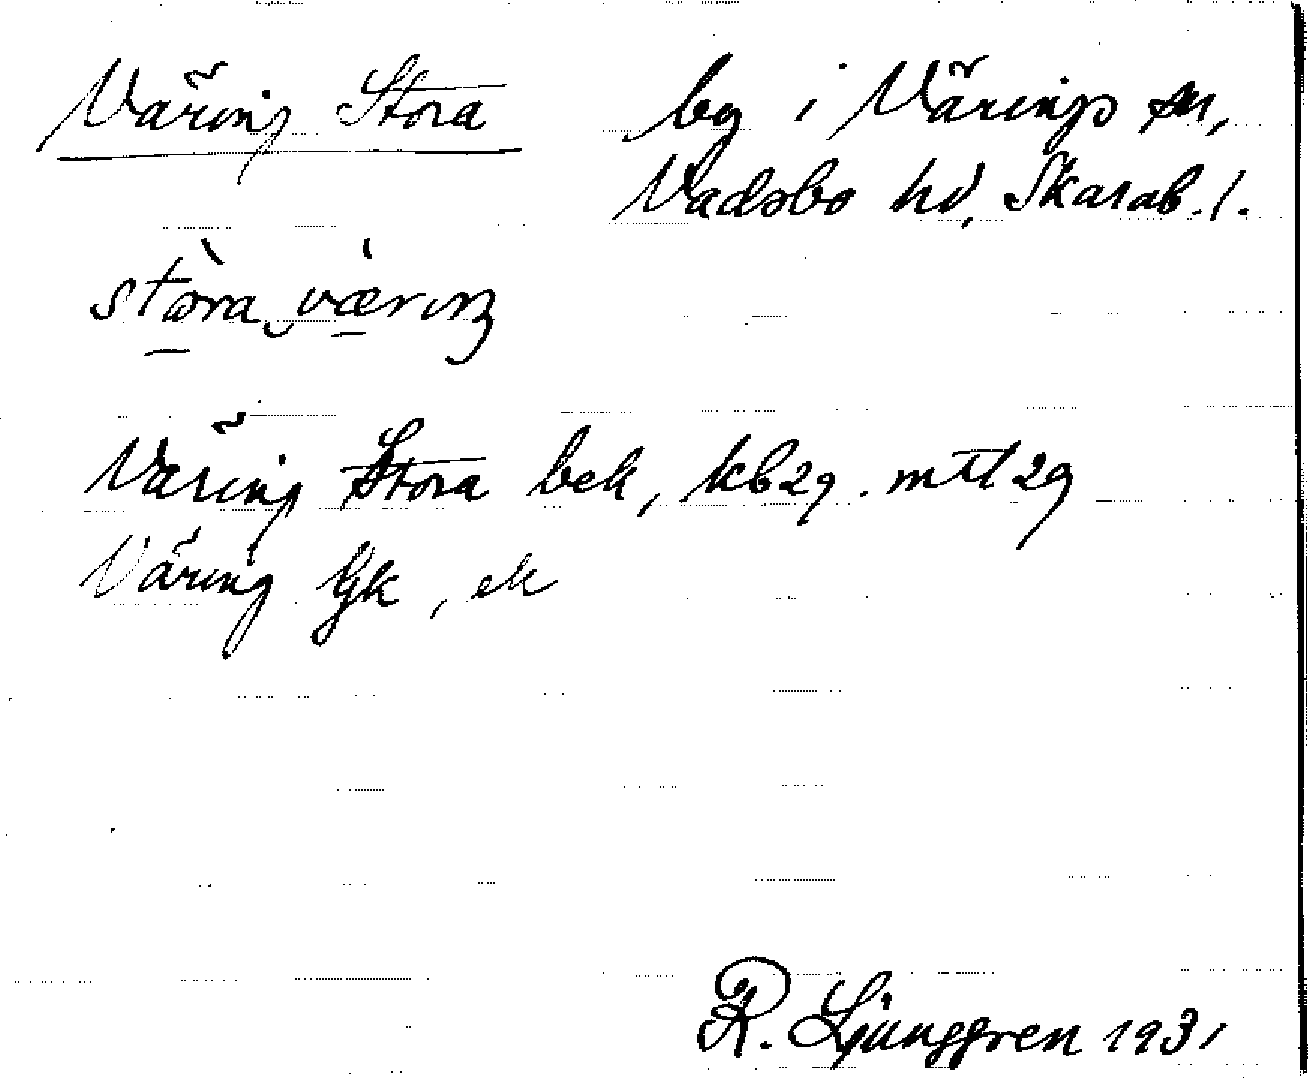 Väring Stora by i Värings sn,
Vadsbo hd, Skarab. l.
stòra vǽring
Väring Stora bek, kb29. mtl 29
Väring Gk, ek
R. Ljunggren 1931